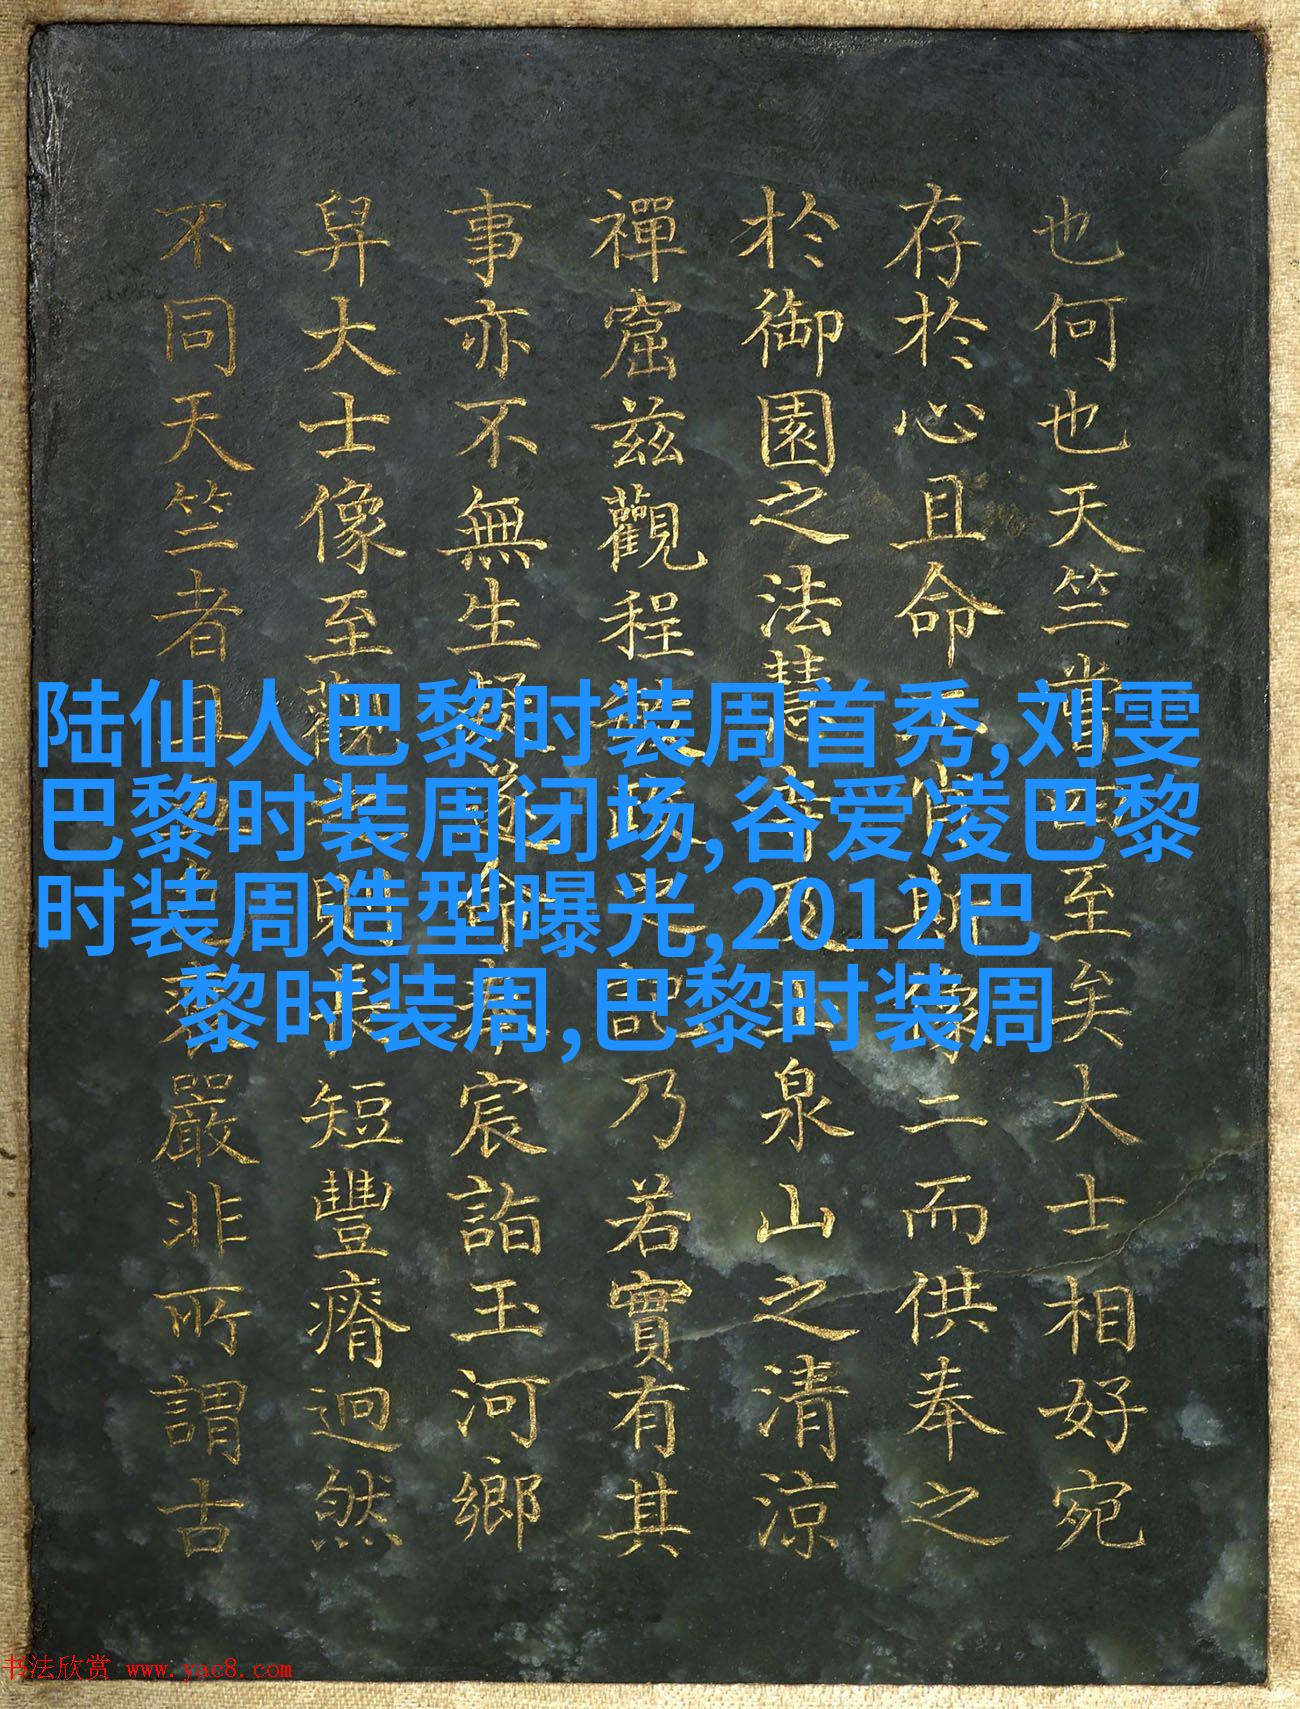 也何也天竺嘗至矣大士相好宛
存於心且命而供奉之
於御園之法泉山之清涼
禪窟兹觀程乃若實有其
事亦不無生宸詣玉河鄉
舁大士像至觀短豐瘠迥然
不同天竺者且嚴非所謂古
陆仙人巴黎时装周首秀,刘雯
巴黎时装周闭场,谷爱凌巴黎
时装周造型曝光,2012巴
黎时装周,巴黎时装周
书法欣赏 www.yac8.com